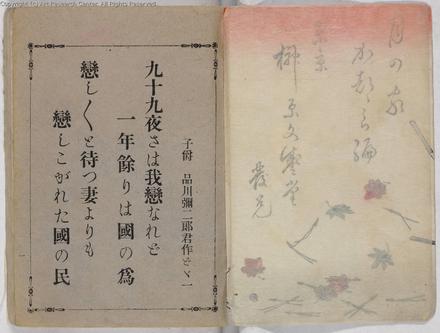 Copyright (C) Art Research Center. All Rights Reserved.
月の家
東京
榊原文盛堂
發兌
子爵 品川彌二郎君作どゞ一
九十九夜さは我戀なれど
一年餘りは國の爲
戀し〱と待つ妻よりも
戀しこがれた國の民